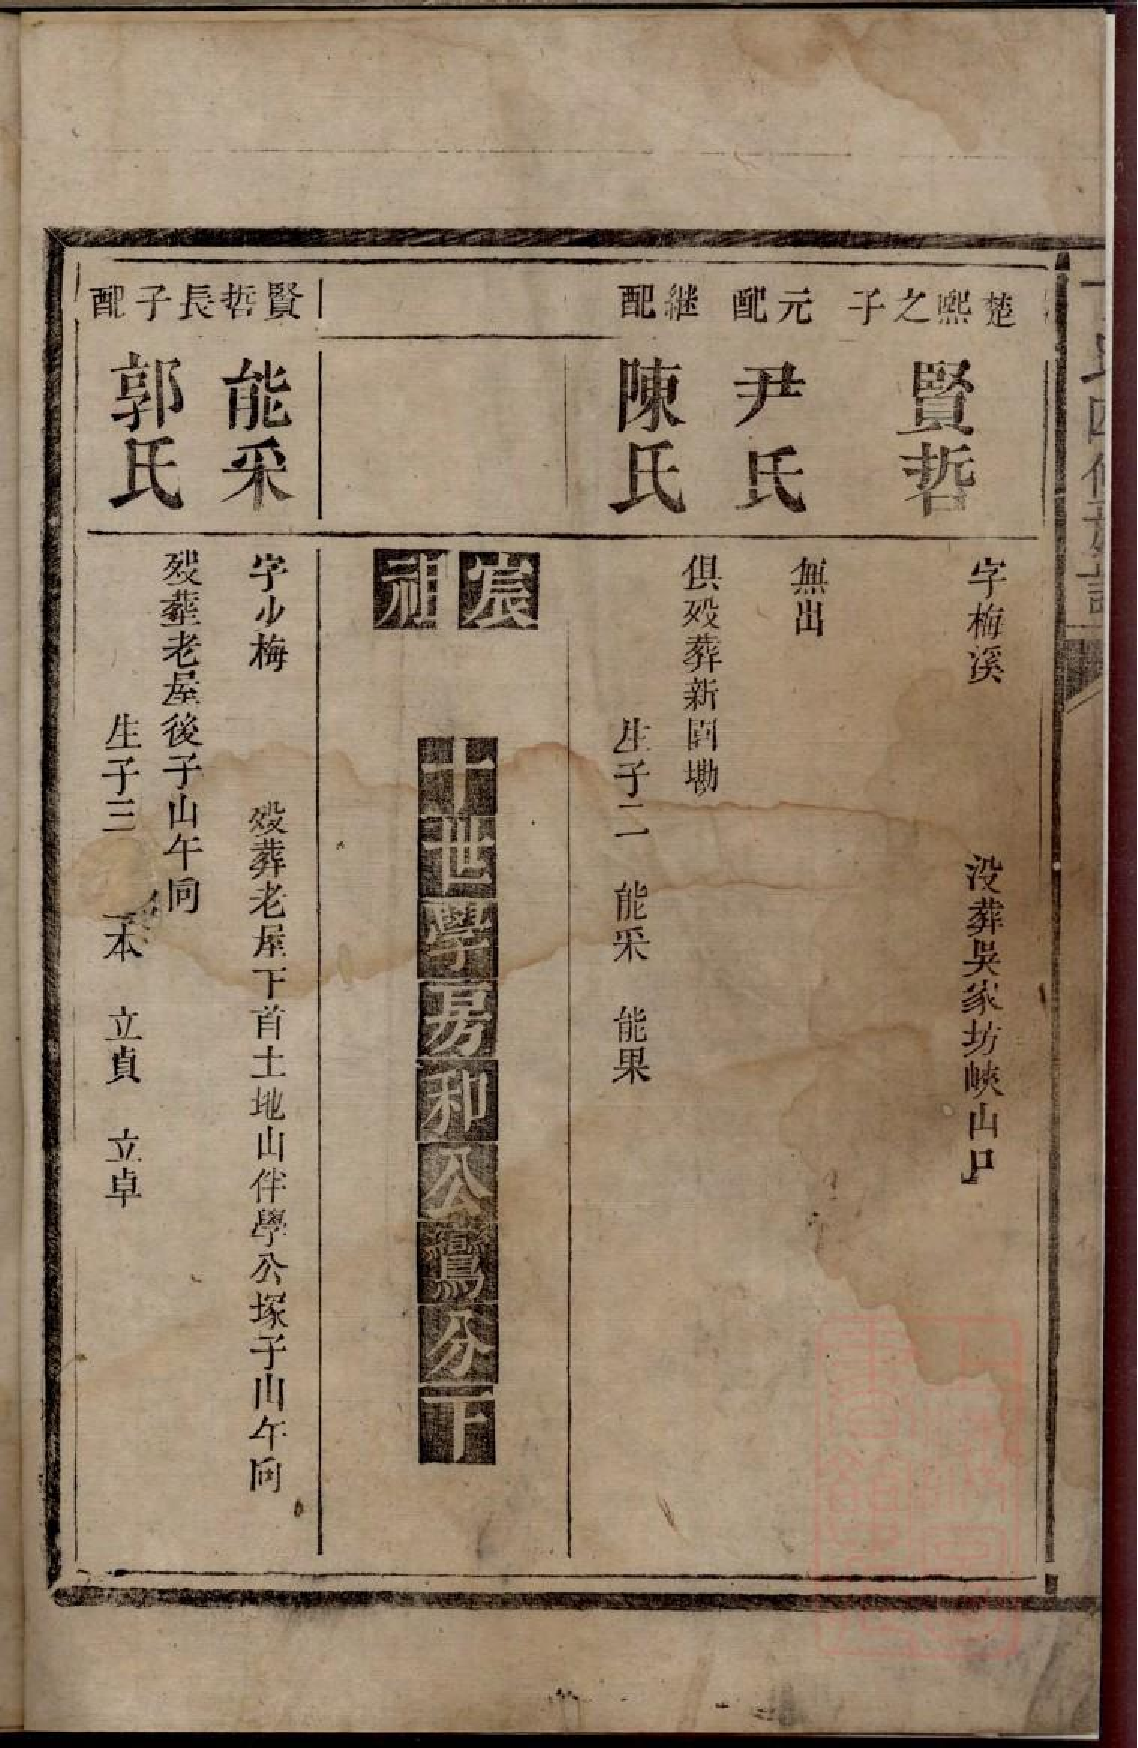 楚熙之子
賢哲
字梅溪 没葬吳家坊峽山口
元配
尹氏
無出
継配
陳氏
俱殁葬新園墈
生子二 能采 能果
宸祖
十世學房和公鸞分下
賢哲長子
能采
字少梅 殁葬老屋下首土地山伴學公塚子山午向
配
郭氏
殁葬老屋後子山午向
生子三 本 立貞 立卓